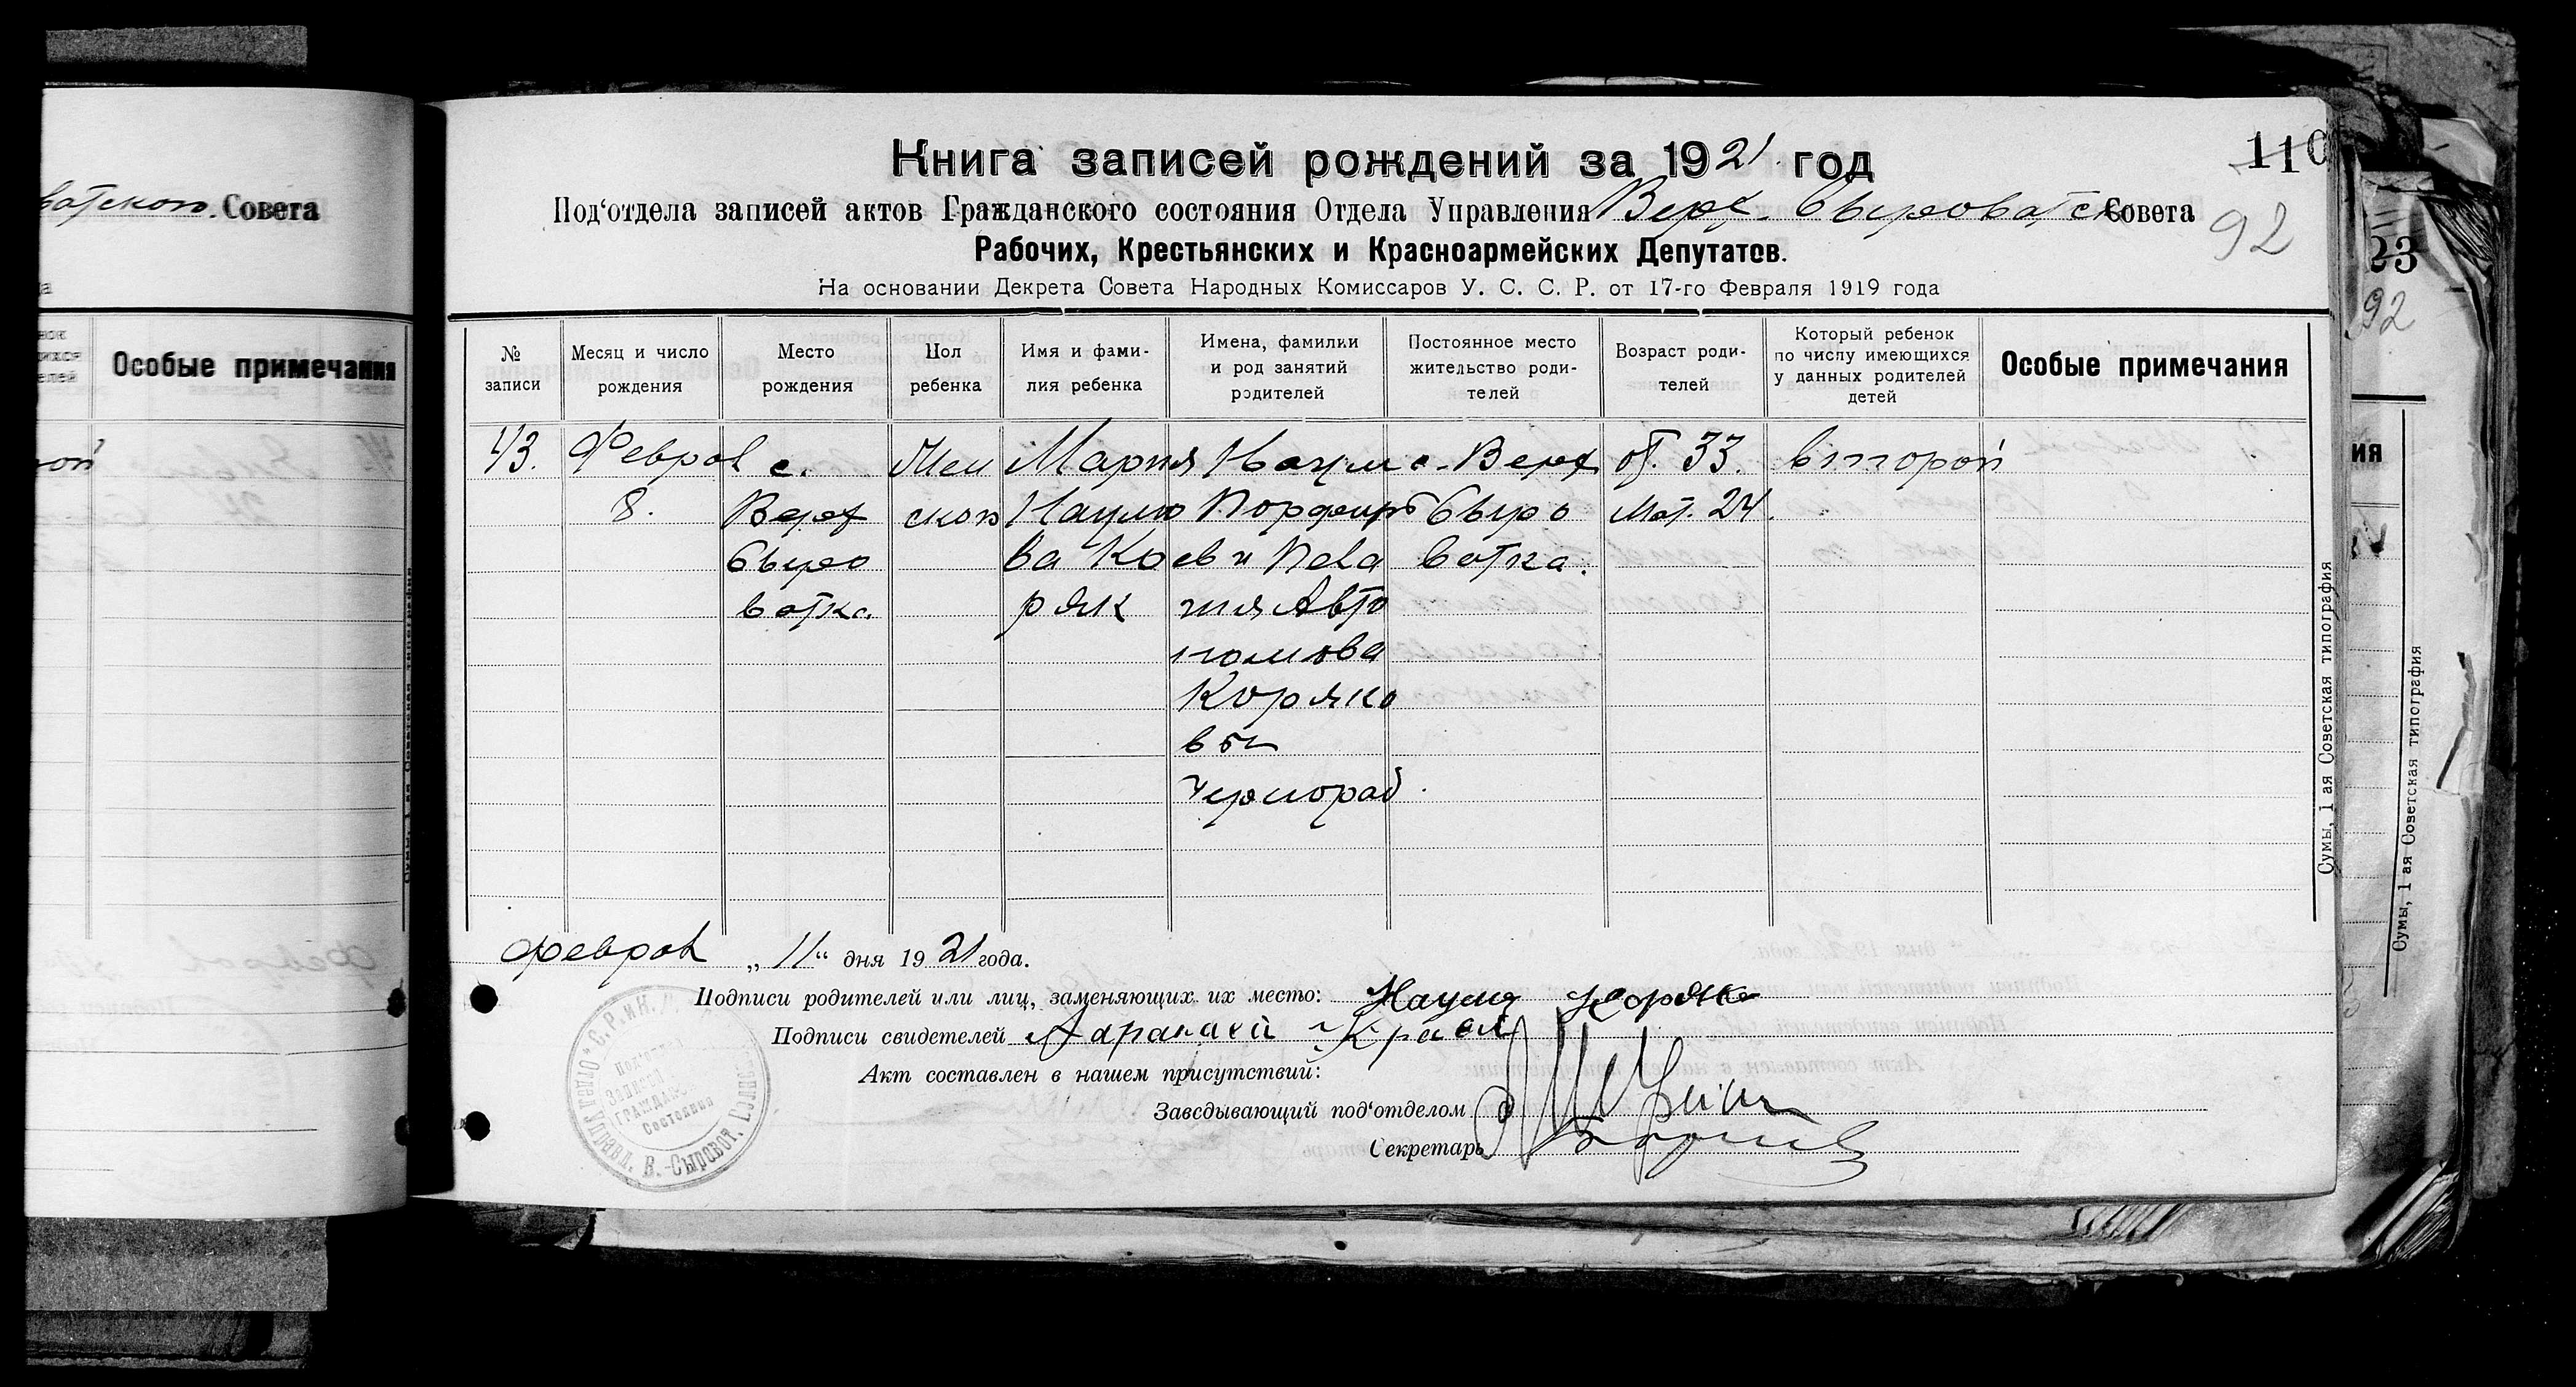 ватского. Совета
Особые примечания
ной
Книга записей рождений за 1921 год
110
Под‘отдела записей актов Гражданского состояния Отдела Управления Верх. Сыроватско Совета
92
Рабочих, Крестьянских и Красноармейских Депутатов.
На основании Декрета Совета Народных Комиссаров У. С. С. Р. от 17-го Февраля 1919 года
23
92
№ записи
Месяц и число рождения
Место рождения
Пол ребенка
Имя и фами-
лия ребенка
Имена, фамилии
и род занятий
родителей
Постоянное место
жительство роди-
телей
Возраст роди-
телей
Который ребенок
по числу имеющихся
у данных родителей
детей
Особые примечания
43.
Феврал
8.
с.
Верх
Сыро
ватка.
Жен
ского
Мария
Наумо
ва Ко
ряк
Наум
Порфирь
ев и Пела
гия Авто
номова
Коряко
вы
Чернораб.
с. Верх
Сыро
ватка.
от. 33.
Мат. 24.
второй
Феврал „11“ дня 1921 года.
Подписи родителей или лиц, заменяющих их место: Наум Коряк
Подписи свидетелей
Акт составлен в нашем присутствий:
Заведывающий под‘отделом
Секретарь
Под'отдел
Записи
Граждан
Состояния
Отдел Управл. В.-Сыроват.
Сумы, 1 ая Советская типография
ия
Сумы, 1 ая Советская типография